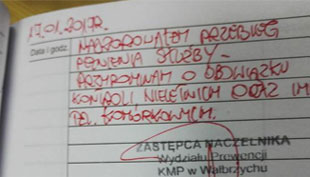 17.01.2017r.
Data i godz. NADZOROWAŁEM PRZEBIEG
PEŁNIENIA SŁUŻBY –
PRZYPOMINAM O OBOWIĄZKU
KONTROLI, NIELETNICH ORAZ IM
TEL. KOMÓRKOWYCH.
ZASTĘPCA NACZELNIKA
Wydziału Prewencji
KMP w Wałbrzychu